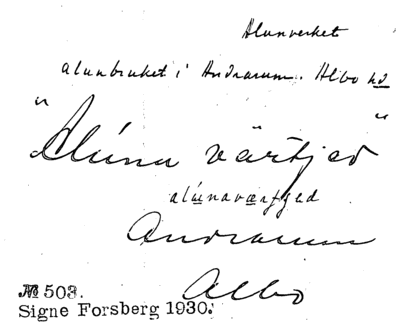 Alunverket
alunbruket i Andrarum. Albo hd
"Alúna värtjed"
alúnaværtjed
Andrarum
Albo
№ 503.
Signe Forsberg 1930.